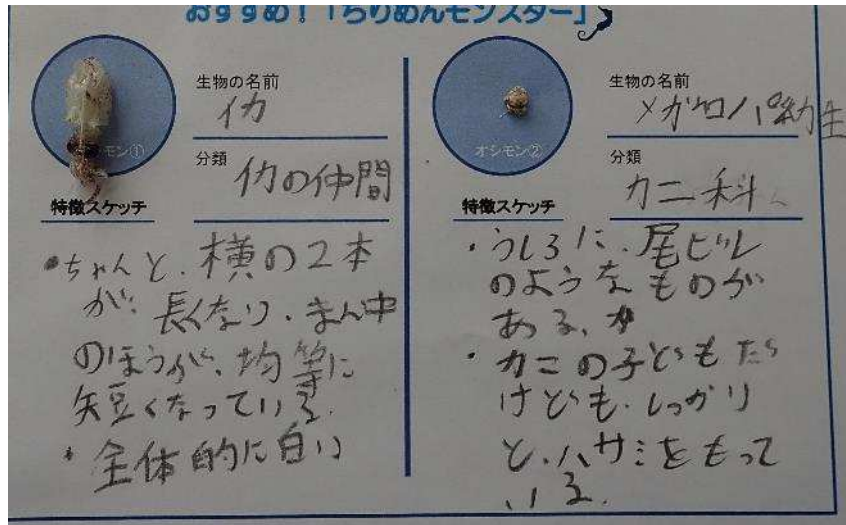 おすすめ！「ちりめんモンスター」
モン①
生物の名前
イカ
分類
イカの仲間
特徴スケッチ
・ちゃんと、横の2本
が、長くなり、まん中
のほうが、均等に
短くなっている。
・全体的に白い
オシモン②
生物の名前
メガロパ幼生
分類
カニ科
特徴スケッチ
・うしろに、尾ビレ
のようなものが
ある。
・カニの子どもだ
けども、しっかり
と、ハサミをもって
いる。